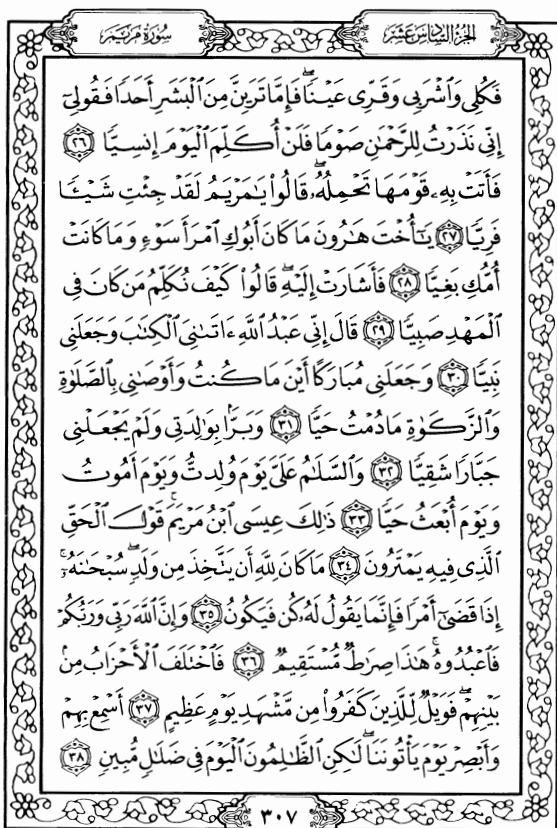 الجزء السادس عشر
سورة مريم
فَكُلِي وَٱشۡرَبِي وَقَرِّي عَيۡنٗاۖ فَإِمَّا تَرَيِنَّ مِنَ ٱلۡبَشَرِ أَحَدٗا فَقُولِيٓ
إِنِّي نَذَرۡتُ لِلرَّحۡمَٰنِ صَوۡمٗا فَلَنۡ أُكَلِّمَ ٱلۡيَوۡمَ إِنسِيّٗا ٢٦
فَأَتَتۡ بِهِۦ قَوۡمَهَا تَحۡمِلُهُۥۖ قَالُواْ يَٰمَرۡيَمُ لَقَدۡ جِئۡتِ شَيۡـٔٗا
فَرِيّٗا ٢٧ يَٰٓأُخۡتَ هَٰرُونَ مَا كَانَ أَبُوكِ ٱمۡرَأَ سَوۡءٖ وَمَا كَانَتۡ
أُمُّكِ بَغِيّٗا ٢٨ فَأَشَارَتۡ إِلَيۡهِۖ قَالُواْ كَيۡفَ نُكَلِّمُ مَن كَانَ فِي
ٱلۡمَهۡدِ صَبِيّٗا ٢٩ قَالَ إِنِّي عَبۡدُ ٱللَّهِ ءَاتَىٰنِيَ ٱلۡكِتَٰبَ وَجَعَلَنِي
نَبِيّٗا ٣٠ وَجَعَلَنِي مُبَارَكًا أَيۡنَ مَا كُنتُ وَأَوۡصَٰنِي بِٱلصَّلَوٰةِ
وَٱلزَّكَوٰةِ مَا دُمۡتُ حَيّٗا ٣١ وَبَرَّۢا بِوَٰلِدَتِي وَلَمۡ يَجۡعَلۡنِي
جَبَّارٗا شَقِيّٗا ٣٢ وَٱلسَّلَٰمُ عَلَيَّ يَوۡمَ وُلِدتُّ وَيَوۡمَ أَمُوتُ
وَيَوۡمَ أُبۡعَثُ حَيّٗا ٣٣ ذَٰلِكَ عِيسَى ٱبۡنُ مَرۡيَمَۖ قَوۡلَ ٱلۡحَقِّ
ٱلَّذِي فِيهِ يَمۡتَرُونَ ٣٤ مَا كَانَ لِلَّهِ أَن يَتَّخِذَ مِن وَلَدٖۖ سُبۡحَٰنَهُۥٓۚ
إِذَا قَضَىٰٓ أَمۡرٗا فَإِنَّمَا يَقُولُ لَهُۥ كُن فَيَكُونُ ٣٥ وَإِنَّ ٱللَّهَ رَبِّي وَرَبُّكُمۡ
فَٱعۡبُدُوهُۚ هَٰذَا صِرَٰطٞ مُّسۡتَقِيمٞ ٣٦ فَٱخۡتَلَفَ ٱلۡأَحۡزَابُ مِنۢ
بَيۡنِهِمۡۖ فَوَيۡلٞ لِّلَّذِينَ كَفَرُواْ مِن مَّشۡهَدِ يَوۡمٍ عَظِيمٍ ٣٧ أَسۡمِعۡ بِهِمۡ
وَأَبۡصِرۡ يَوۡمَ يَأۡتُونَنَاۖ لَٰكِنِ ٱلظَّٰلِمُونَ ٱلۡيَوۡمَ فِي ضَلَٰلٖ مُّبِينٖ ٣٨
٣٠٧